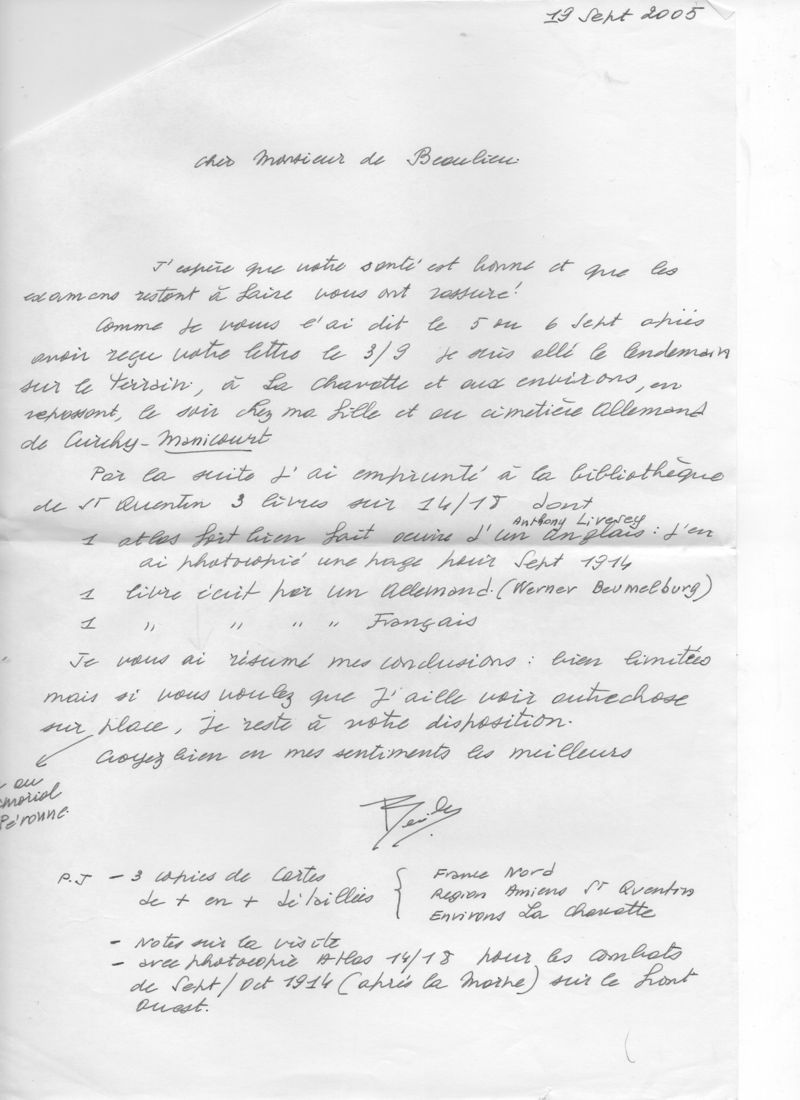 19 Sept 2005
Cher Monsieur de Beaulieu
J'espère que votre santé est bonne et que les
examens restant à faire vous ont rassuré!
Comme je vous l'ai dit le 5 ou 6 Sept après
avoir reçu votre lettre le 3/9 je suis allé le lendemain
sur le terrain, à La Chavatte et aux environs, en
repassant, le soir chez ma fille et au cimetière Allemand
de Curchy-Manicourt
Par la suite J'ai emprunté à la bibliothèque
de St Quentin 3 livres sur 14/18 dont
Anthony Livesey
1 atlas fort bien fait oeuvre d'un anglais : J'en
ai photocopié une page pour Sept 1914
1 livre écrit par un Allemand. (Werner Beumelburg)
1 " " " " Français
Je vous ai résumé mes conclusions : bien limitées
mais si vous voulez que J'aille voir autrechose
sur place, Je reste à votre disposition.
Croyez bien en mes sentiments les meilleurs
ou
Péronne.
P.J - 3 copies de Cartes
de + en + détaillées
France Nord
Region Amiens St Quentin
Environs La Chavatte
- Notes sur la visite
- avec photocopie Atlas 14/18 pour les combats
de Sept/Oct 1914 (après la Marne) sur le front
Ouest.